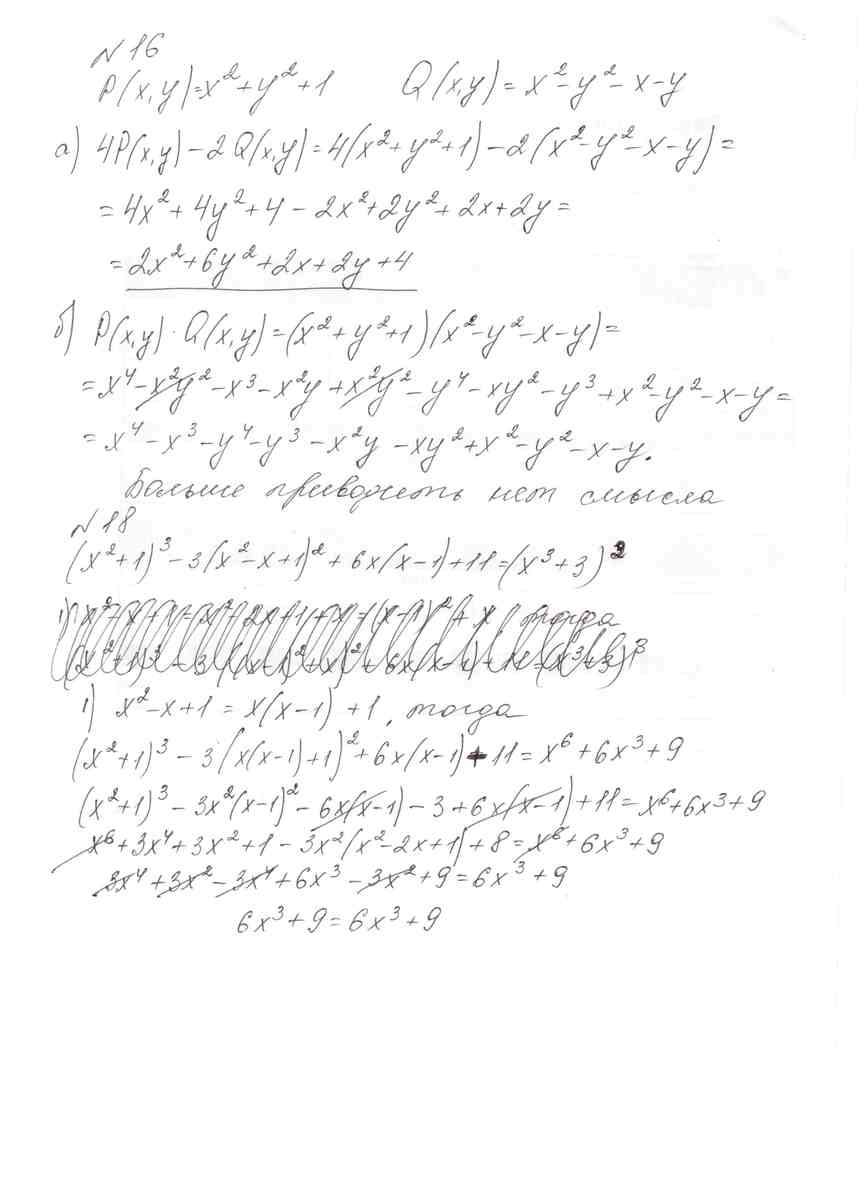 N 16
P(x,y)=x²+y²+1 Q(x,y)=x²-y²-x-y
а) 4P(x,y)-2Q(x,y)=4(x²+y²+1)-2(x²-y²-x-y)=
=4x²+4y²+4-2x²+2y²+2x+2y=
=2x²+6y²+2x+2y+4
б) P(x,y)·Q(x,y)=(x²+y²+1)(x²-y²-x-y)=
=x⁴-x²y²-x³-x²y+x²y²-y⁴-xy²-y³+x²-y²-x-y=
=x⁴-x³-y⁴-y³-x²y-xy²+x²-y²-x-y.
Больше приводить нет смысла
N 18
(x²+1)³-3(x²-x+1)²+6x(x-1)+11=(x³+3)²
1) x²-x+1=x(x-1)+1, тогда
(x²+1)³-3(x(x-1)+1)²+6x(x-1)+11=x⁶+6x³+9
(x²+1)³-3x²(x-1)²-6x(x-1)-3+6x(x-1)+11=x⁶+6x³+9
x⁶+3x⁴+3x²+1-3x²(x²-2x+1)+8=x⁶+6x³+9
3x⁴+3x²-3x⁴+6x³-3x²+9=6x³+9
6x³+9=6x³+9